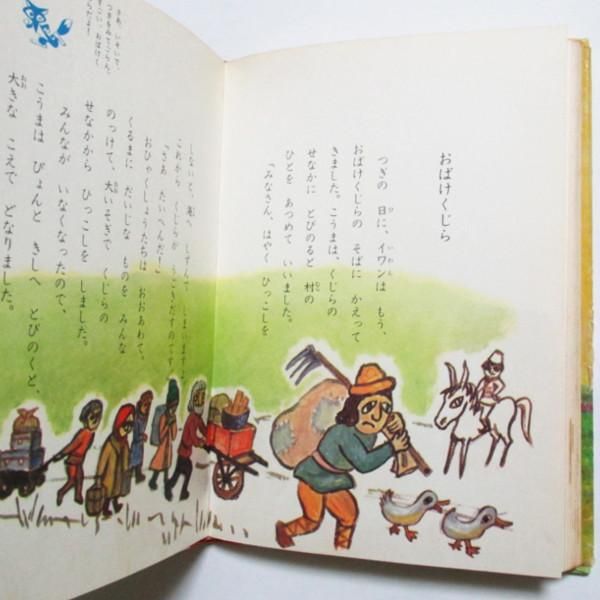 おばけくじら
つぎの 日に、イワンは もう、
おばけくじらの そばに かえって
きました。こうまは、くじらの
せなかに とびのると 村の
ひとを あつめて いいました。
「みなさん、はやく ひっこしを
しないと、海へ しずんで しまいますよ。
これから くじらが うごきだすのです。」
「さあ たいへんだ!」
おひゃくしょうたちは おおあわて。
くるまに だいじな ものを みんな
のっけて、大いそぎで くじらの
せなかから ひっこしを しました。
みんなが いなくなったので、
こうまは ぴょんと きしへ とびのくと、
大きな こえで どなりました。
さあ、いそいで、
つぎをみてごらん。
すごい、おばけく
らだよ!